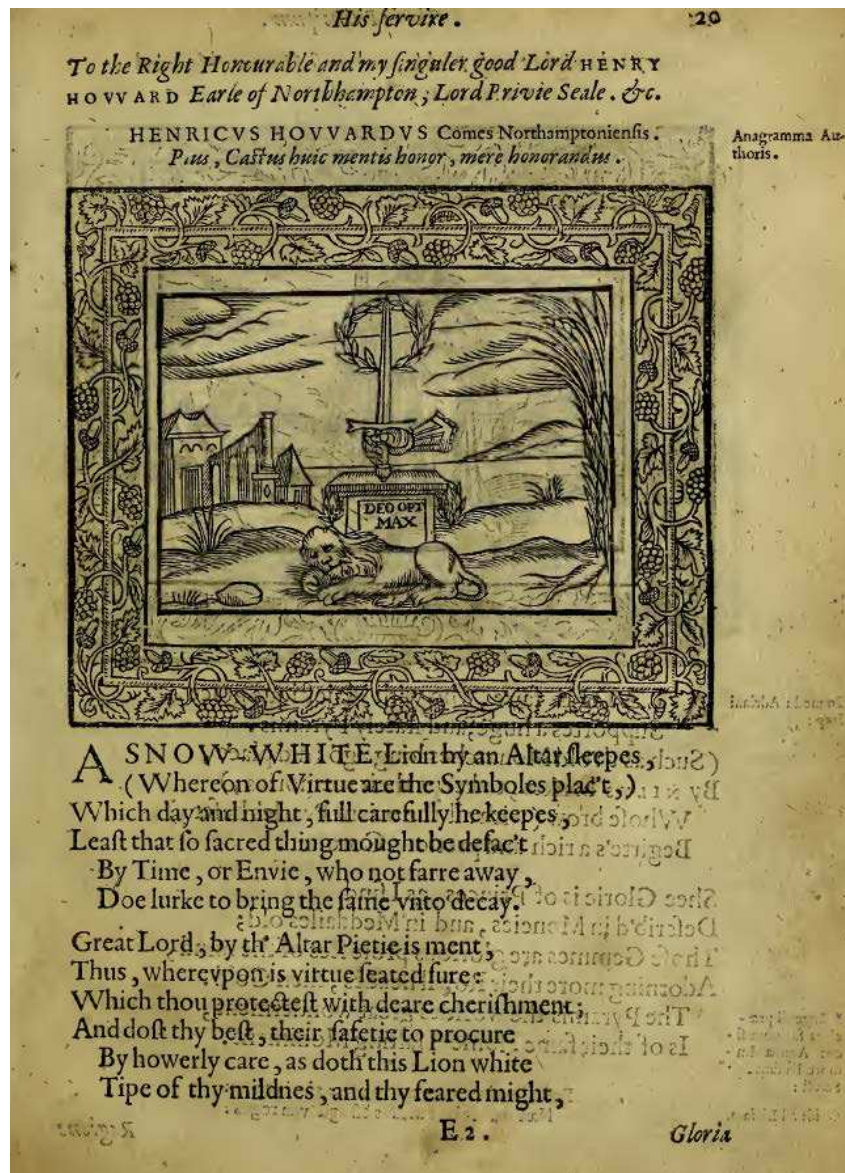 His ſervire. 20
To the Right Honourable and my ſinguler good Lord HENRY
HOVVARD Earle of Northhampton, Lord Privie Seale. &c.
HENRICVS HOVVARDVS Comes Northamptonienſis.
Pius, Caſtus huic mentis honor, mere honorandus.
Anagramma Au-
thoris.
DEO OPT
MAX
A SNOW-WHITE Lion by an Altar ſleepes,
(Whereon of Virtue are the Symboles plac't,)
Which day and night, full carefully he keepes,
Leaſt that ſo ſacred thing mought be defac't
By Time, or Envie, who not farre away,
Doe lurke to bring the ſame vnto decay.
Great Lord, by th' Altar Pietie is ment;
Thus, wherevpon is virtue ſeated ſure:
Which thou protecteſt with deare cheriſhment;
And doſt thy beſt, their ſafetie to procure
By howerly care, as doth this Lion white
Tipe of thy mildnes, and thy feared might,
E2. Gloria